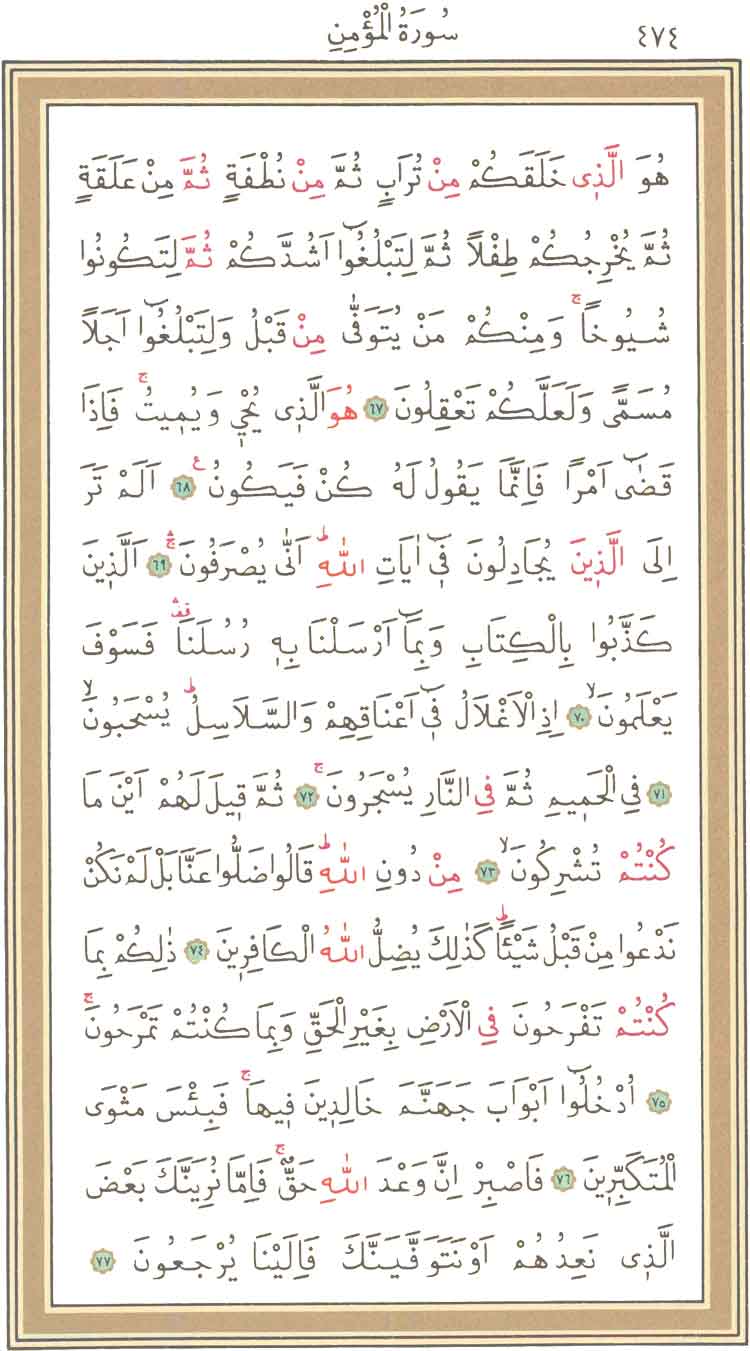 سُورَةُ الْمُؤْمِنِ ٤٧٤
هُوَ الَّذ۪ى خَلَقَكُمْ مِنْ تُرَابٍ ثُمَّ مِنْ نُطْفَةٍ ثُمَّ مِنْ عَلَقَةٍ
ثُمَّ يُخْرِجُكُمْ طِفْلًا ثُمَّ لِتَبْلُغُٓوا اَشُدَّكُمْ ثُمَّ لِتَكُونُوا
شُيُوخًاۚ وَمِنْكُمْ مَنْ يُتَوَفّٰى مِنْ قَبْلُ وَلِتَبْلُغُٓوا اَجَلًا
مُسَمًّى وَلَعَلَّكُمْ تَعْقِلُونَ ٦٧ هُوَ الَّذ۪ى يُحْي۪ وَيُم۪يتُۚ فَاِذَا
قَضٰٓى اَمْرًا فَاِنَّمَا يَقُولُ لَهُ كُنْ فَيَكُونُ ع ٦٨ اَلَمْ تَرَ
اِلَى الَّذ۪ينَ يُجَادِلُونَ ف۪ٓى اٰيَاتِ اللّٰهِۜ اَنّٰى يُصْرَفُونَۚۛ ٦٩ اَلَّذ۪ينَ
كَذَّبُوا بِالْكِتَابِ وَبِمَٓا اَرْسَلْنَا بِه۪ رُسُلَنَا۠ۛ فَسَوْفَ
يَعْلَمُونَۙ ٧٠ اِذِ الْاَغْلَالُ ف۪ٓى اَعْنَاقِهِمْ وَالسَّلَاسِلُۜ يُسْحَبُونَۙ
٧١ فِي الْحَم۪يمِ ثُمَّ فِي النَّارِ يُسْجَرُونَۚ ٧٢ ثُمَّ ق۪يلَ لَهُمْ اَيْنَ مَا
كُنْتُمْ تُشْرِكُونَۙ ٧٣ مِنْ دُونِ اللّٰهِۜ قَالُوا ضَلُّوا عَنَّا بَلْ لَمْ نَكُنْ
نَدْعُوا مِنْ قَبْلُ شَيْـًٔاۜ كَذٰلِكَ يُضِلُّ اللّٰهُ الْكَافِر۪ينَ ٧٤ ذٰلِكُمْ بِمَا
كُنْتُمْ تَفْرَحُونَ فِي الْاَرْضِ بِغَيْرِ الْحَقِّ وَبِمَا كُنْتُمْ تَمْرَحُونَۚ
٧٥ اُدْخُلُٓوا اَبْوَابَ جَهَنَّمَ خَالِد۪ينَ ف۪يهَاۚ فَبِئْسَ مَثْوَى
الْمُتَكَبِّر۪ينَ ٧٦ فَاصْبِرْ اِنَّ وَعْدَ اللّٰهِ حَقٌّۚ فَاِمَّا نُرِيَنَّكَ بَعْضَ
الَّذ۪ى نَعِدُهُمْ اَوْ نَتَوَفَّيَنَّكَ فَاِلَيْنَا يُرْجَعُونَ ٧٧